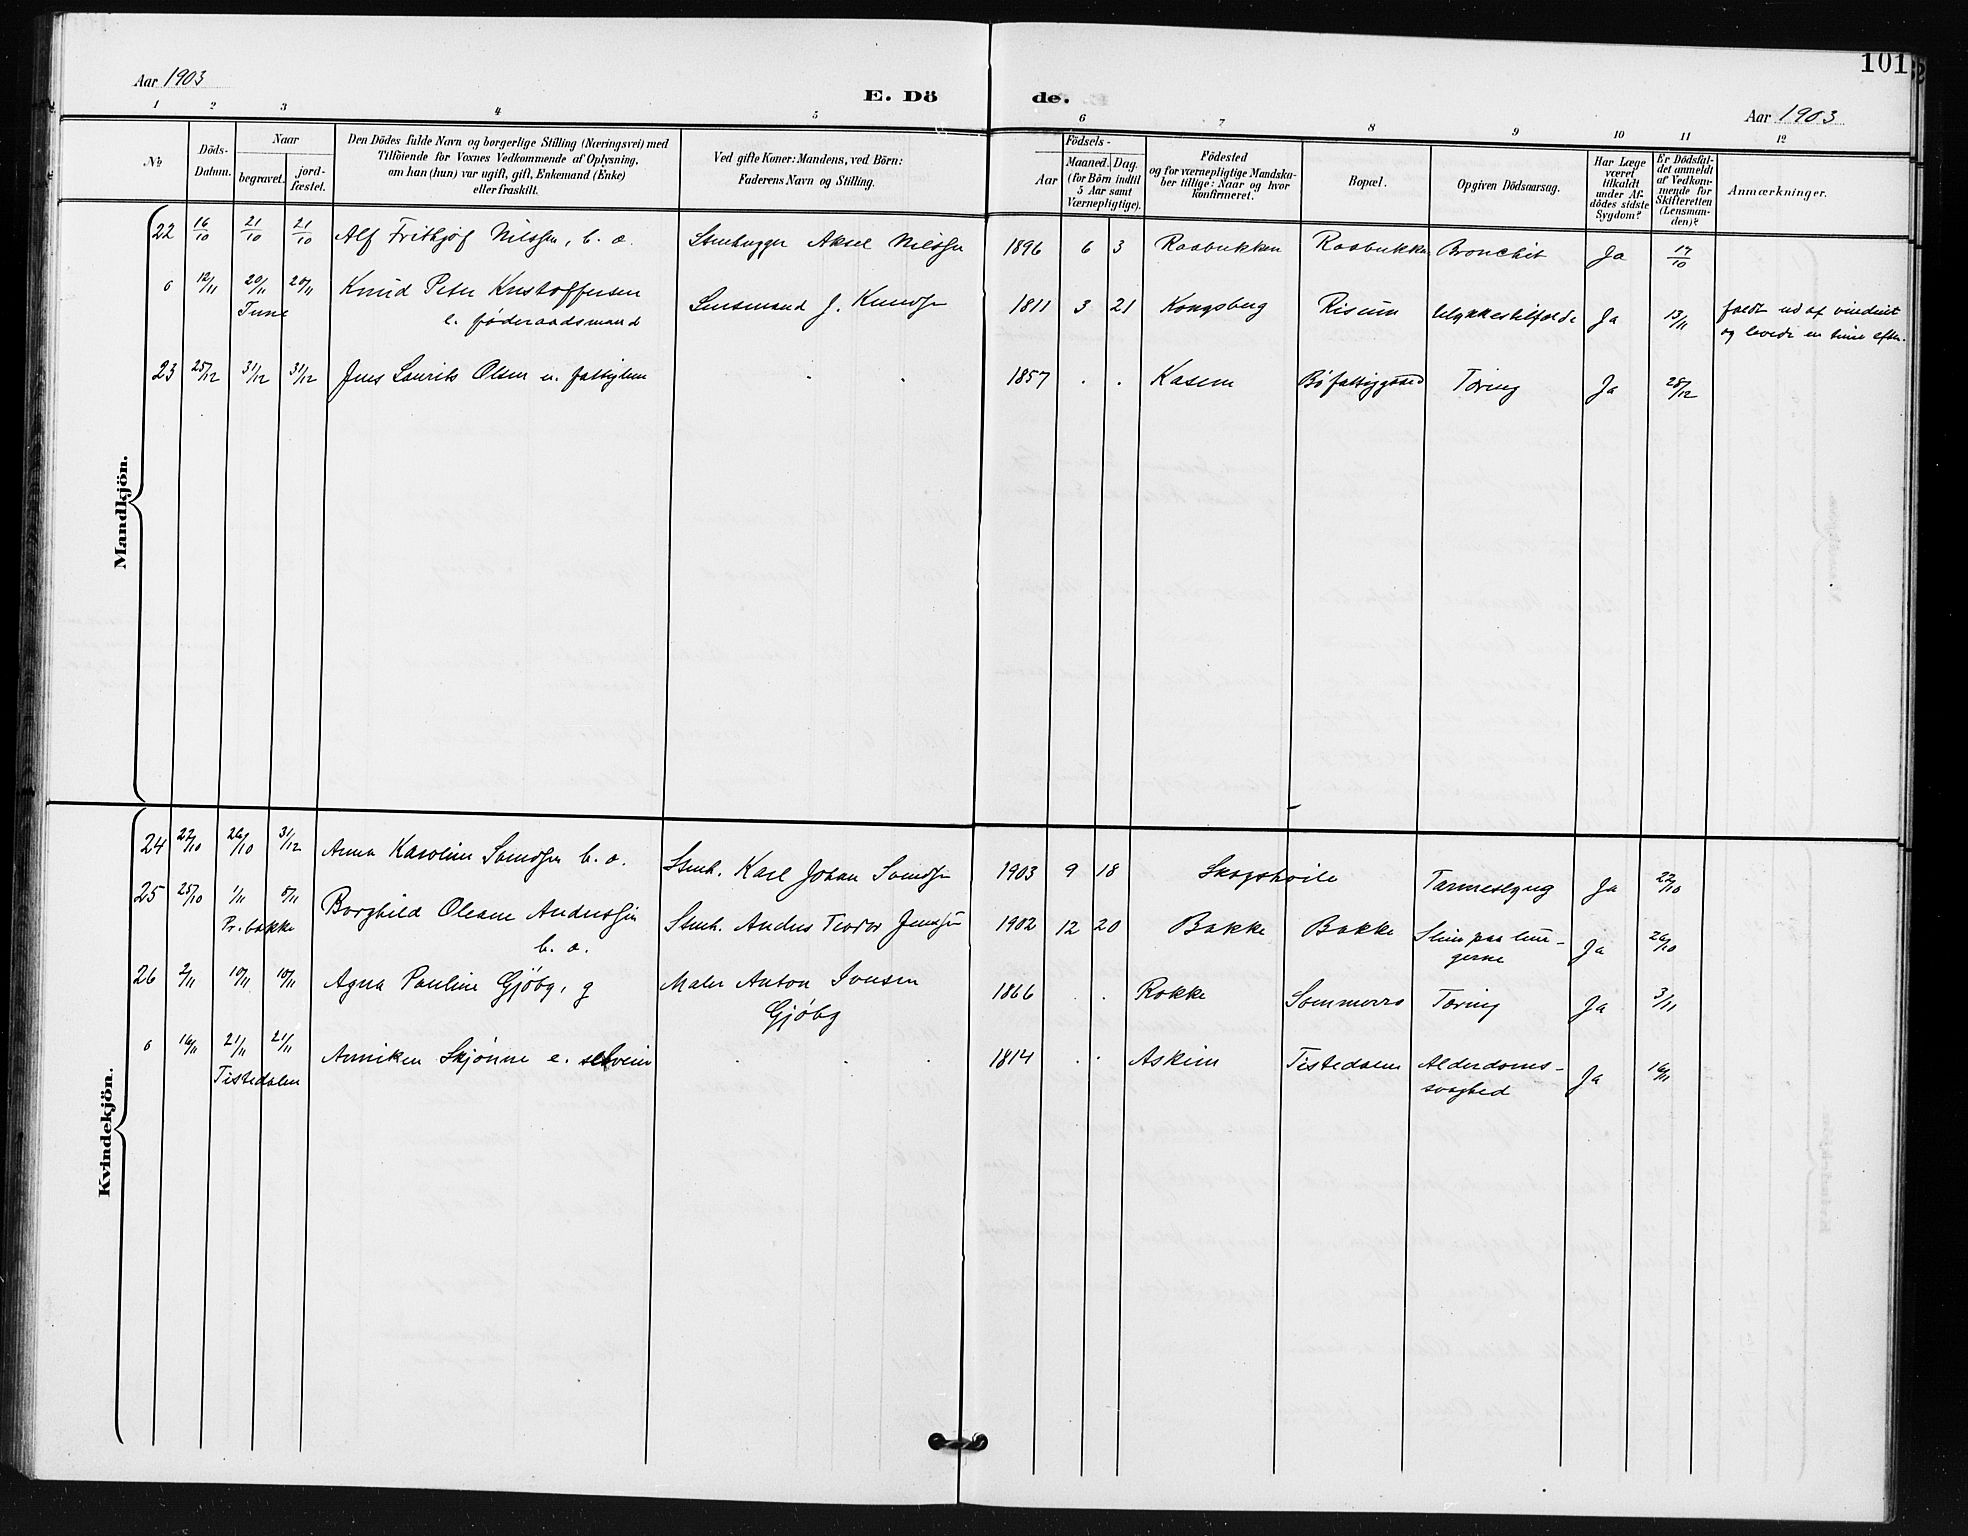 101
Aar 1903
E. Dö
de.
Aar 1903
1 2 3 4 5 6 7 8 9 10 11 12
No.
Döds-
Datum.
Naar
begravet.
jord-
fæstet.
Den Dödes fulde Navn og borgerlige Stilling (Næringsvei) med
Tilföiende for Voxnes Vedkommende af Oplysning,
om han (hun) var ugift, gift, Enkemand (Enke)
eller fraskilt.
Ved gifte Koner: Mandens, ved Börn:
Faderens Navn og Stilling.
Födsels-
Aar
Maaned. Dag.
(for Börn indtil
5 Aar samt
Værnepligtige).
Födested
og for værnepligtige Mandska-
ber tillige: Naar og hvor
konfirmeret.
Bopæl.
Opgiven Dödsaarsag.
Har Læge
været
tilkaldt
under Af-
dödes sidste
Sygdom?
Er Dödsfal-
det anmeldt
af Vedkom-
mende for
Skifteretten
(Lensman-
den)?
Anmærkninger.
Mandkjön.
22 16/10 21/10 21/10 Alf Frithjof Nilssen, b. a. Stenhugger Aksel Nilssen 1896 6 3 Raabukken Raabukken Bronchit Ja 17/10
0 12/11 20/11 20/11 Knud Peter Kristoffersen Lensmand J. Knudsen 1811 3 21 Kongsberg Risum Ulykkestilfælde Ja 13/11 faldt ud af vinduet
Tune e. föderaadsmand og levede en time efter.
23 25/12 31/12 31/12 Jens Laurits Olsen u. fattiglem . . 1857 . . Kasem Bö fattiggaard Tæring Ja 28/12
Kvindekjön.
24 22/10 26/10 31/12 Anna Karoline Svendsen b. a. Stenh. Karl Johan Svendsen 1903 9 18 Skogshvile Tarmeslyng Ja 22/10
25 25/10 1/11 8/11 Borghild Oleane Anderssen Stenh. Anders Teodor Jenssen 1902 12 20 Bakke Bakke Slim paa lun-
Pr. bakke b. a. gerne Ja 26/10
26 2/11 10/11 10/11 Agna Pauline Gjöby, g Maler Anton Ivensen 1866 . . Rokke Sommerro Tæring Ja 3/11
Gjöby
0 16/11 21/11 21/11 Anniken Skjönne e. selveier . . . 1814 . . Askim Tistedalen Alderdoms-
Tistedalen svaghed Ja 16/11